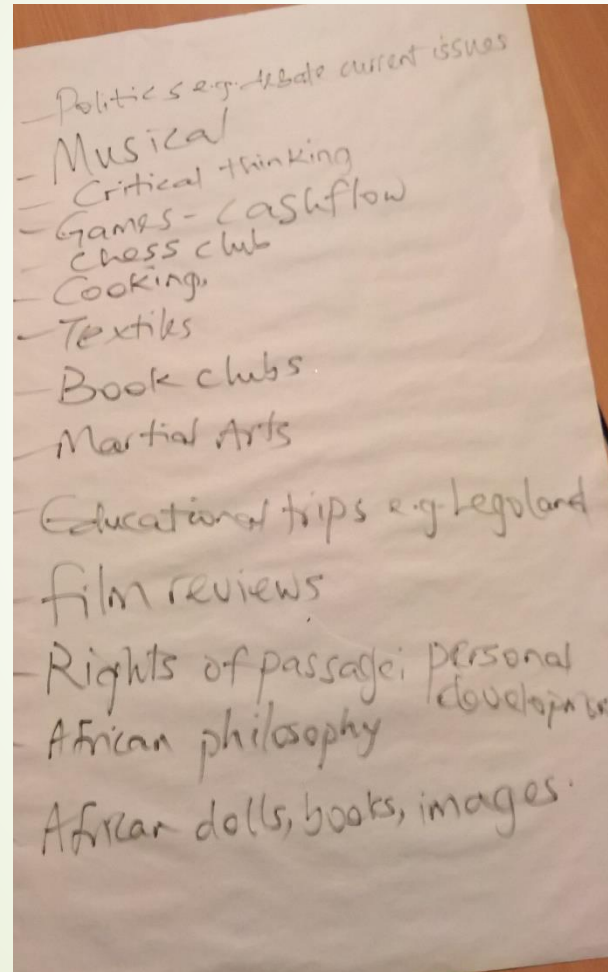 - Politics e.g. debate current issues
- Musical
- Critical thinking
- Games - Cashflow
- chess club
- Cooking.
- Textiles
- Book clubs
- Martial Arts
- Educational trips e.g. Legoland
- film reviews
- Rights of passage; personal
develop
- African philosophy
African dolls, books, images.